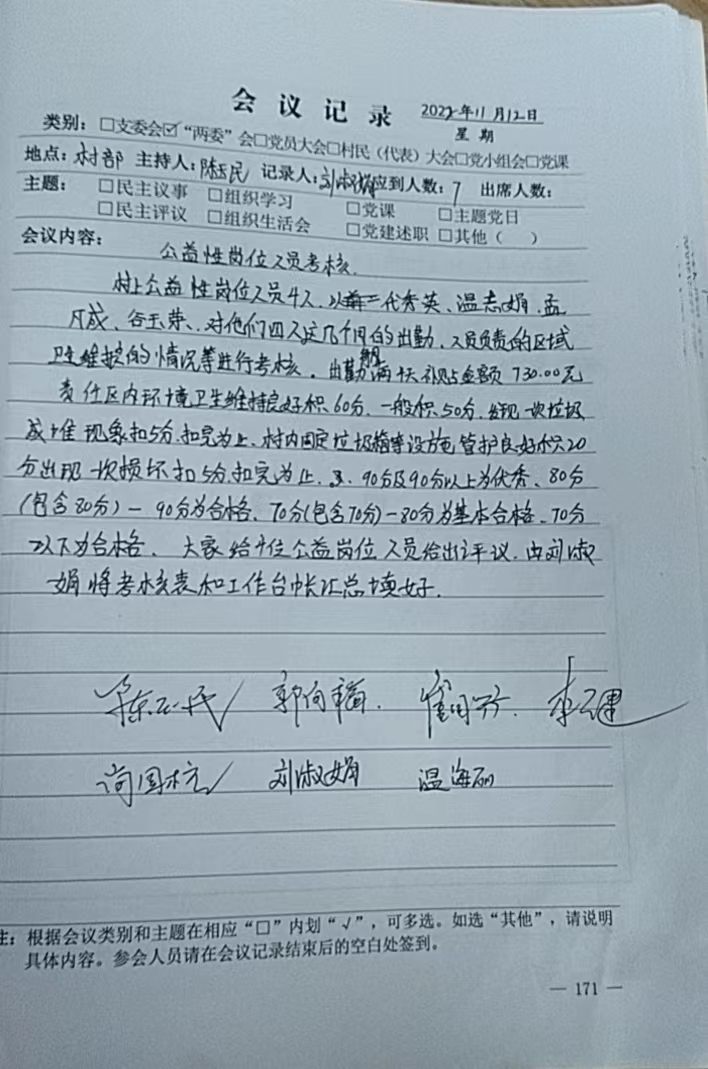 会议记录 2022年11月12日
星期
类别：□支委会☑“两委”会□党员大会□村民（代表）大会□党小组会□党课
地点：村部 主持人：陈玉民 记录人：刘淑娟 应到人数：7 出席人数：
主题：□民主议事 □组织学习 □党课 □主题党日
□民主评议 □组织生活会 □党建述职 □其他（ ）
会议内容：
公益性岗位人员考核.
村上公益性岗位人员4人. 代秀英、温志娟.孟
凡成、谷玉荣、.对他们四人这几个月的出勤.人员负责的区域
卫生维护的情况等进行考核. 出勤满 天补贴金额730.00元
责任区内环境卫生维持良好积60分.一般积50分.发现一次垃圾
成堆现象扣5分.扣完为止.村内固定垃圾箱等设施管护良好积20
分出现一次损坏扣5分.扣完为止. 90分及90分以上为优秀、80分
(包含80分)-90分为合格、70分(包含70分)-80分为基本合格、70分
以下为合格. 大家给4位公益岗位人员给出评议.由刘淑
娟将考核表和工作台帐汇总填好.
陈玉民 郭向
刘淑娟 温海丽
注：根据会议类别和主题在相应“□”内划“√”，可多选。如选“其他”，请说明
具体内容。参会人员请在会议记录结束后的空白处签到。
— 171 —